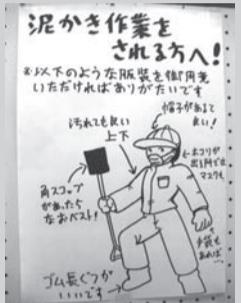 泥かき作業を
される方へ!
※以下のような服装を御用意
いただければありがたいです
帽子があるて
良い!
汚れても良い
上下
ホコリが
出るので
マスクも
角スコップ
があったら
なおベスト!
手袋も
あれば
ゴム長ぐつが
いいです